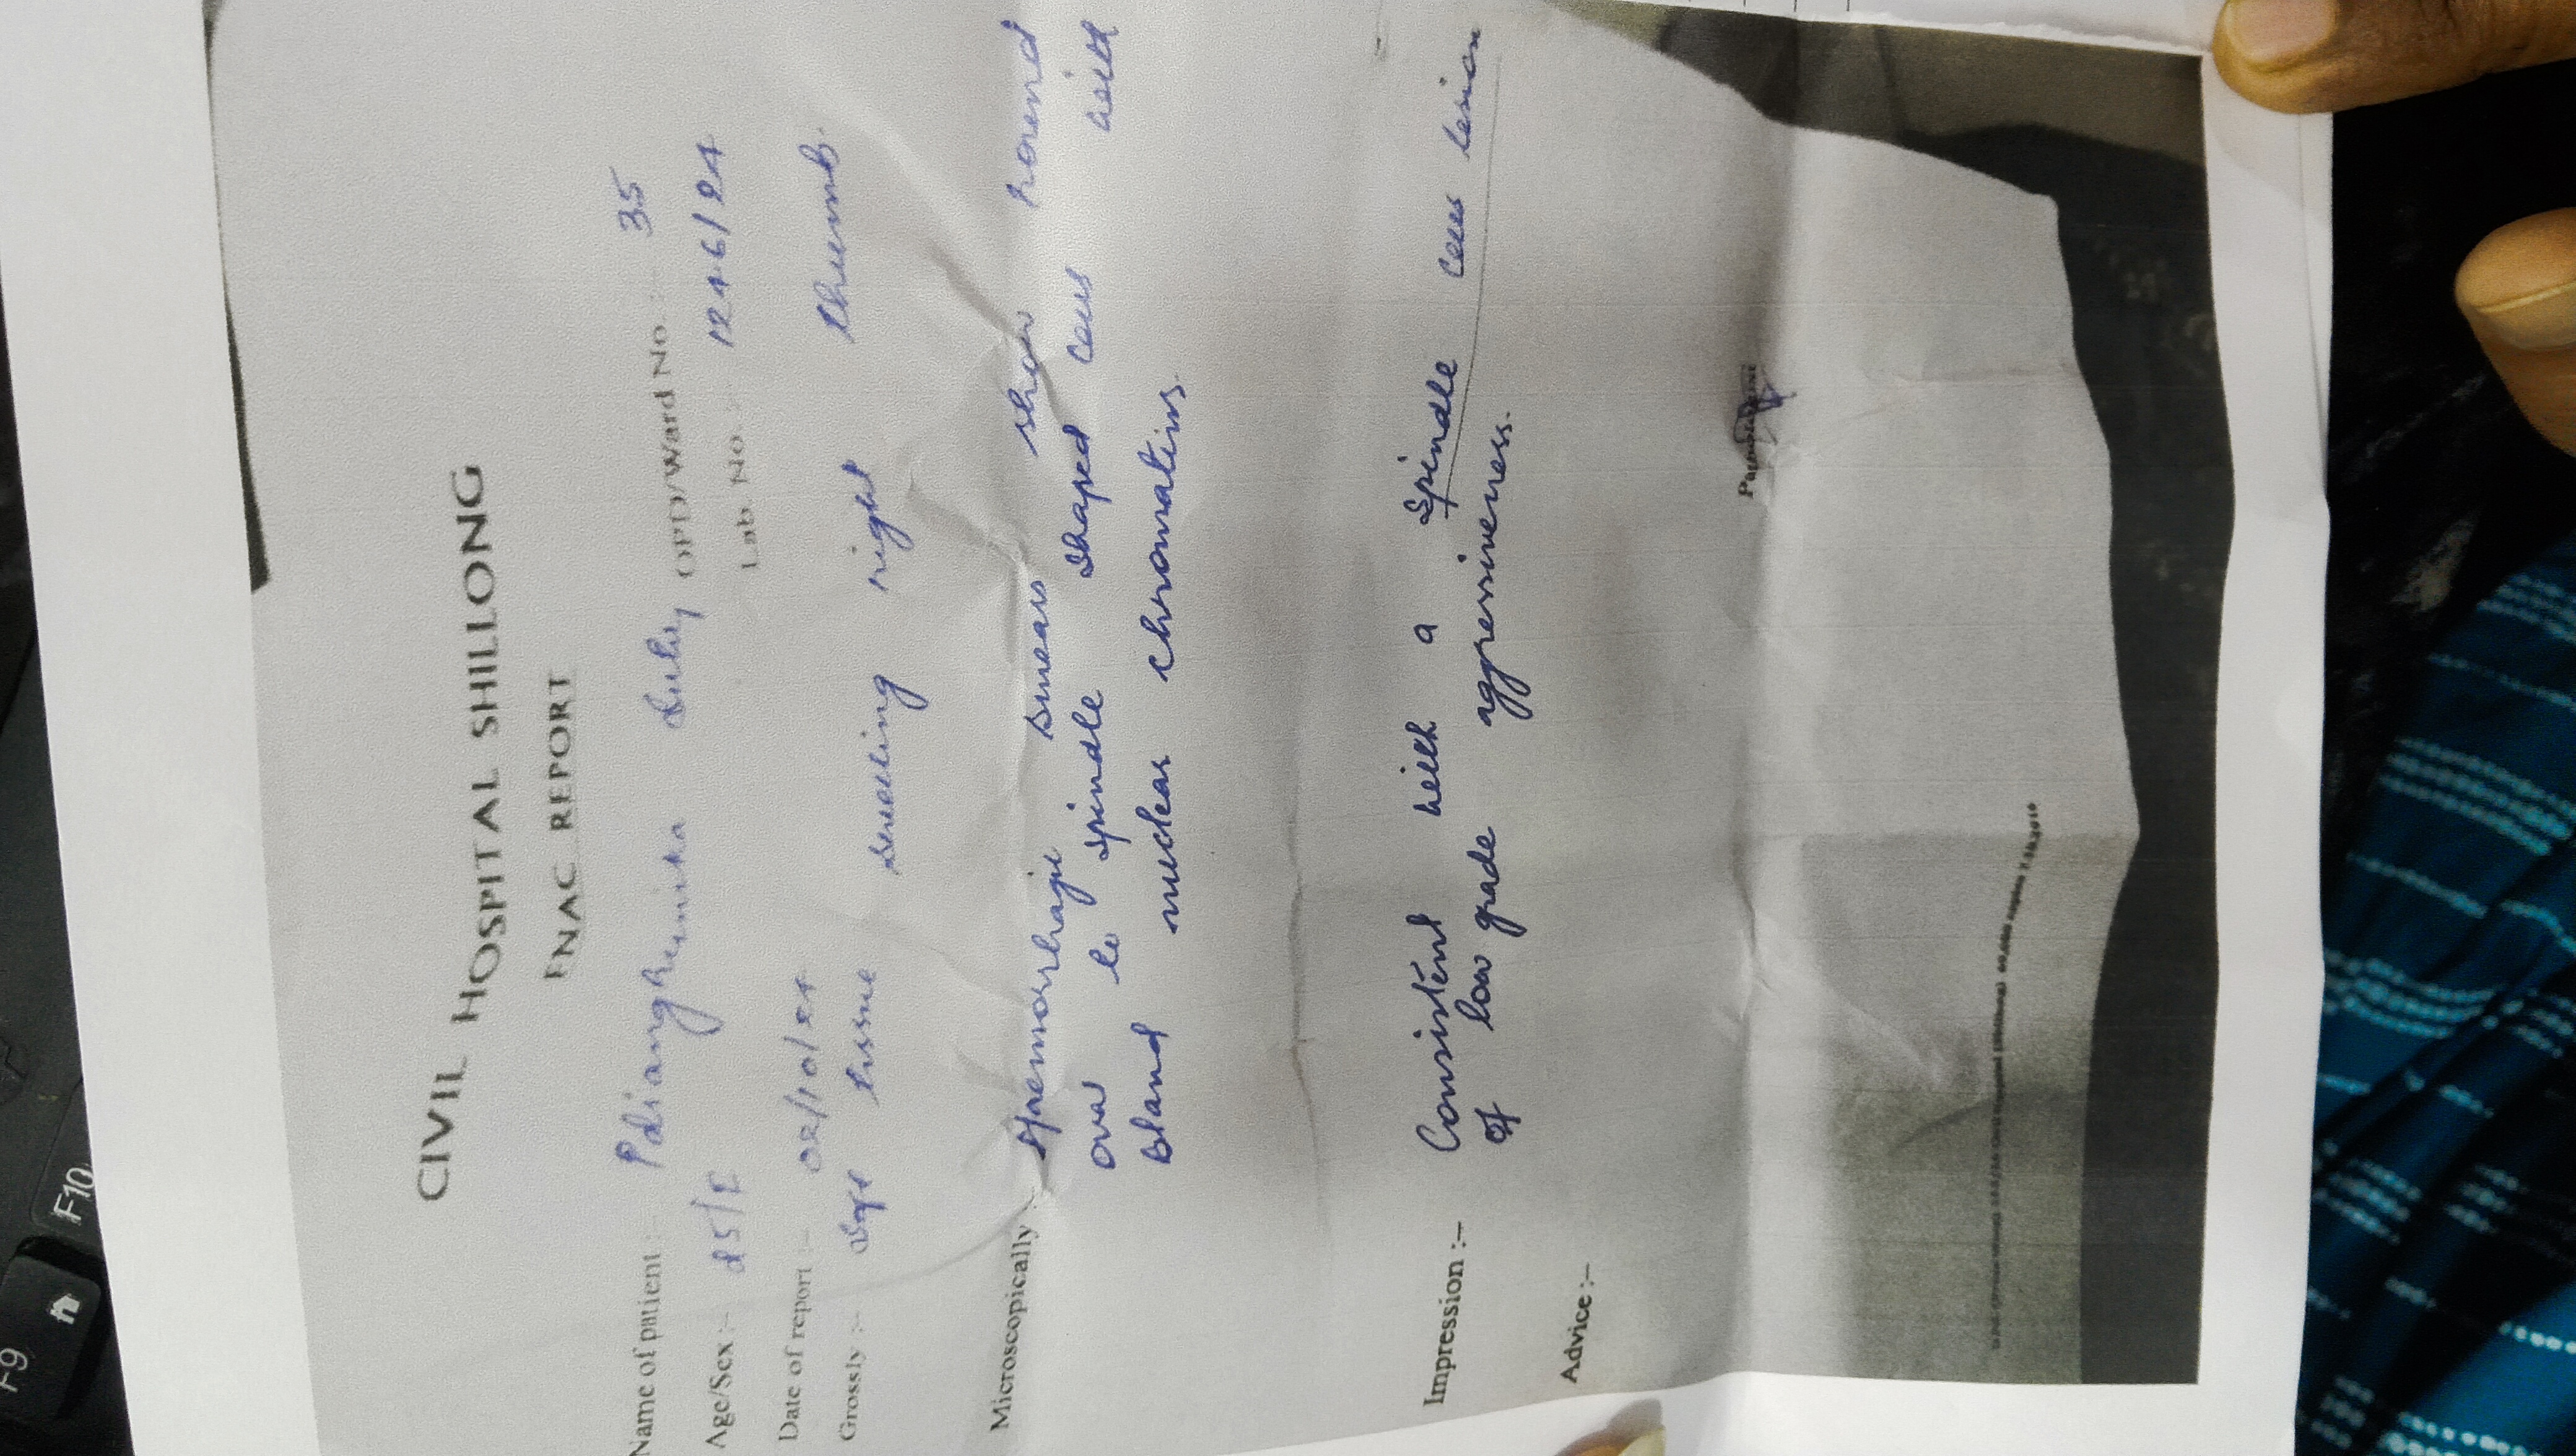 CIVIL HOSPITAL SHILLONG
FNAC REPORT
Name of patient :- OPD/Ward No. :- 35
Age/Sex :- 25/F Lab. No. :- 1246/24
Date of report :- 02/10/24
Grossly :- Soft tissue swelling right thumb.
Microscopically :- Haemorrhagic smears show round
oval to spindle shaped cells with
bland nuclear chromatins.
Impression :- Consistent with a spindle cell lesion
of low grade aggressiveness.
Advice :-
Pathologist
F9
F10